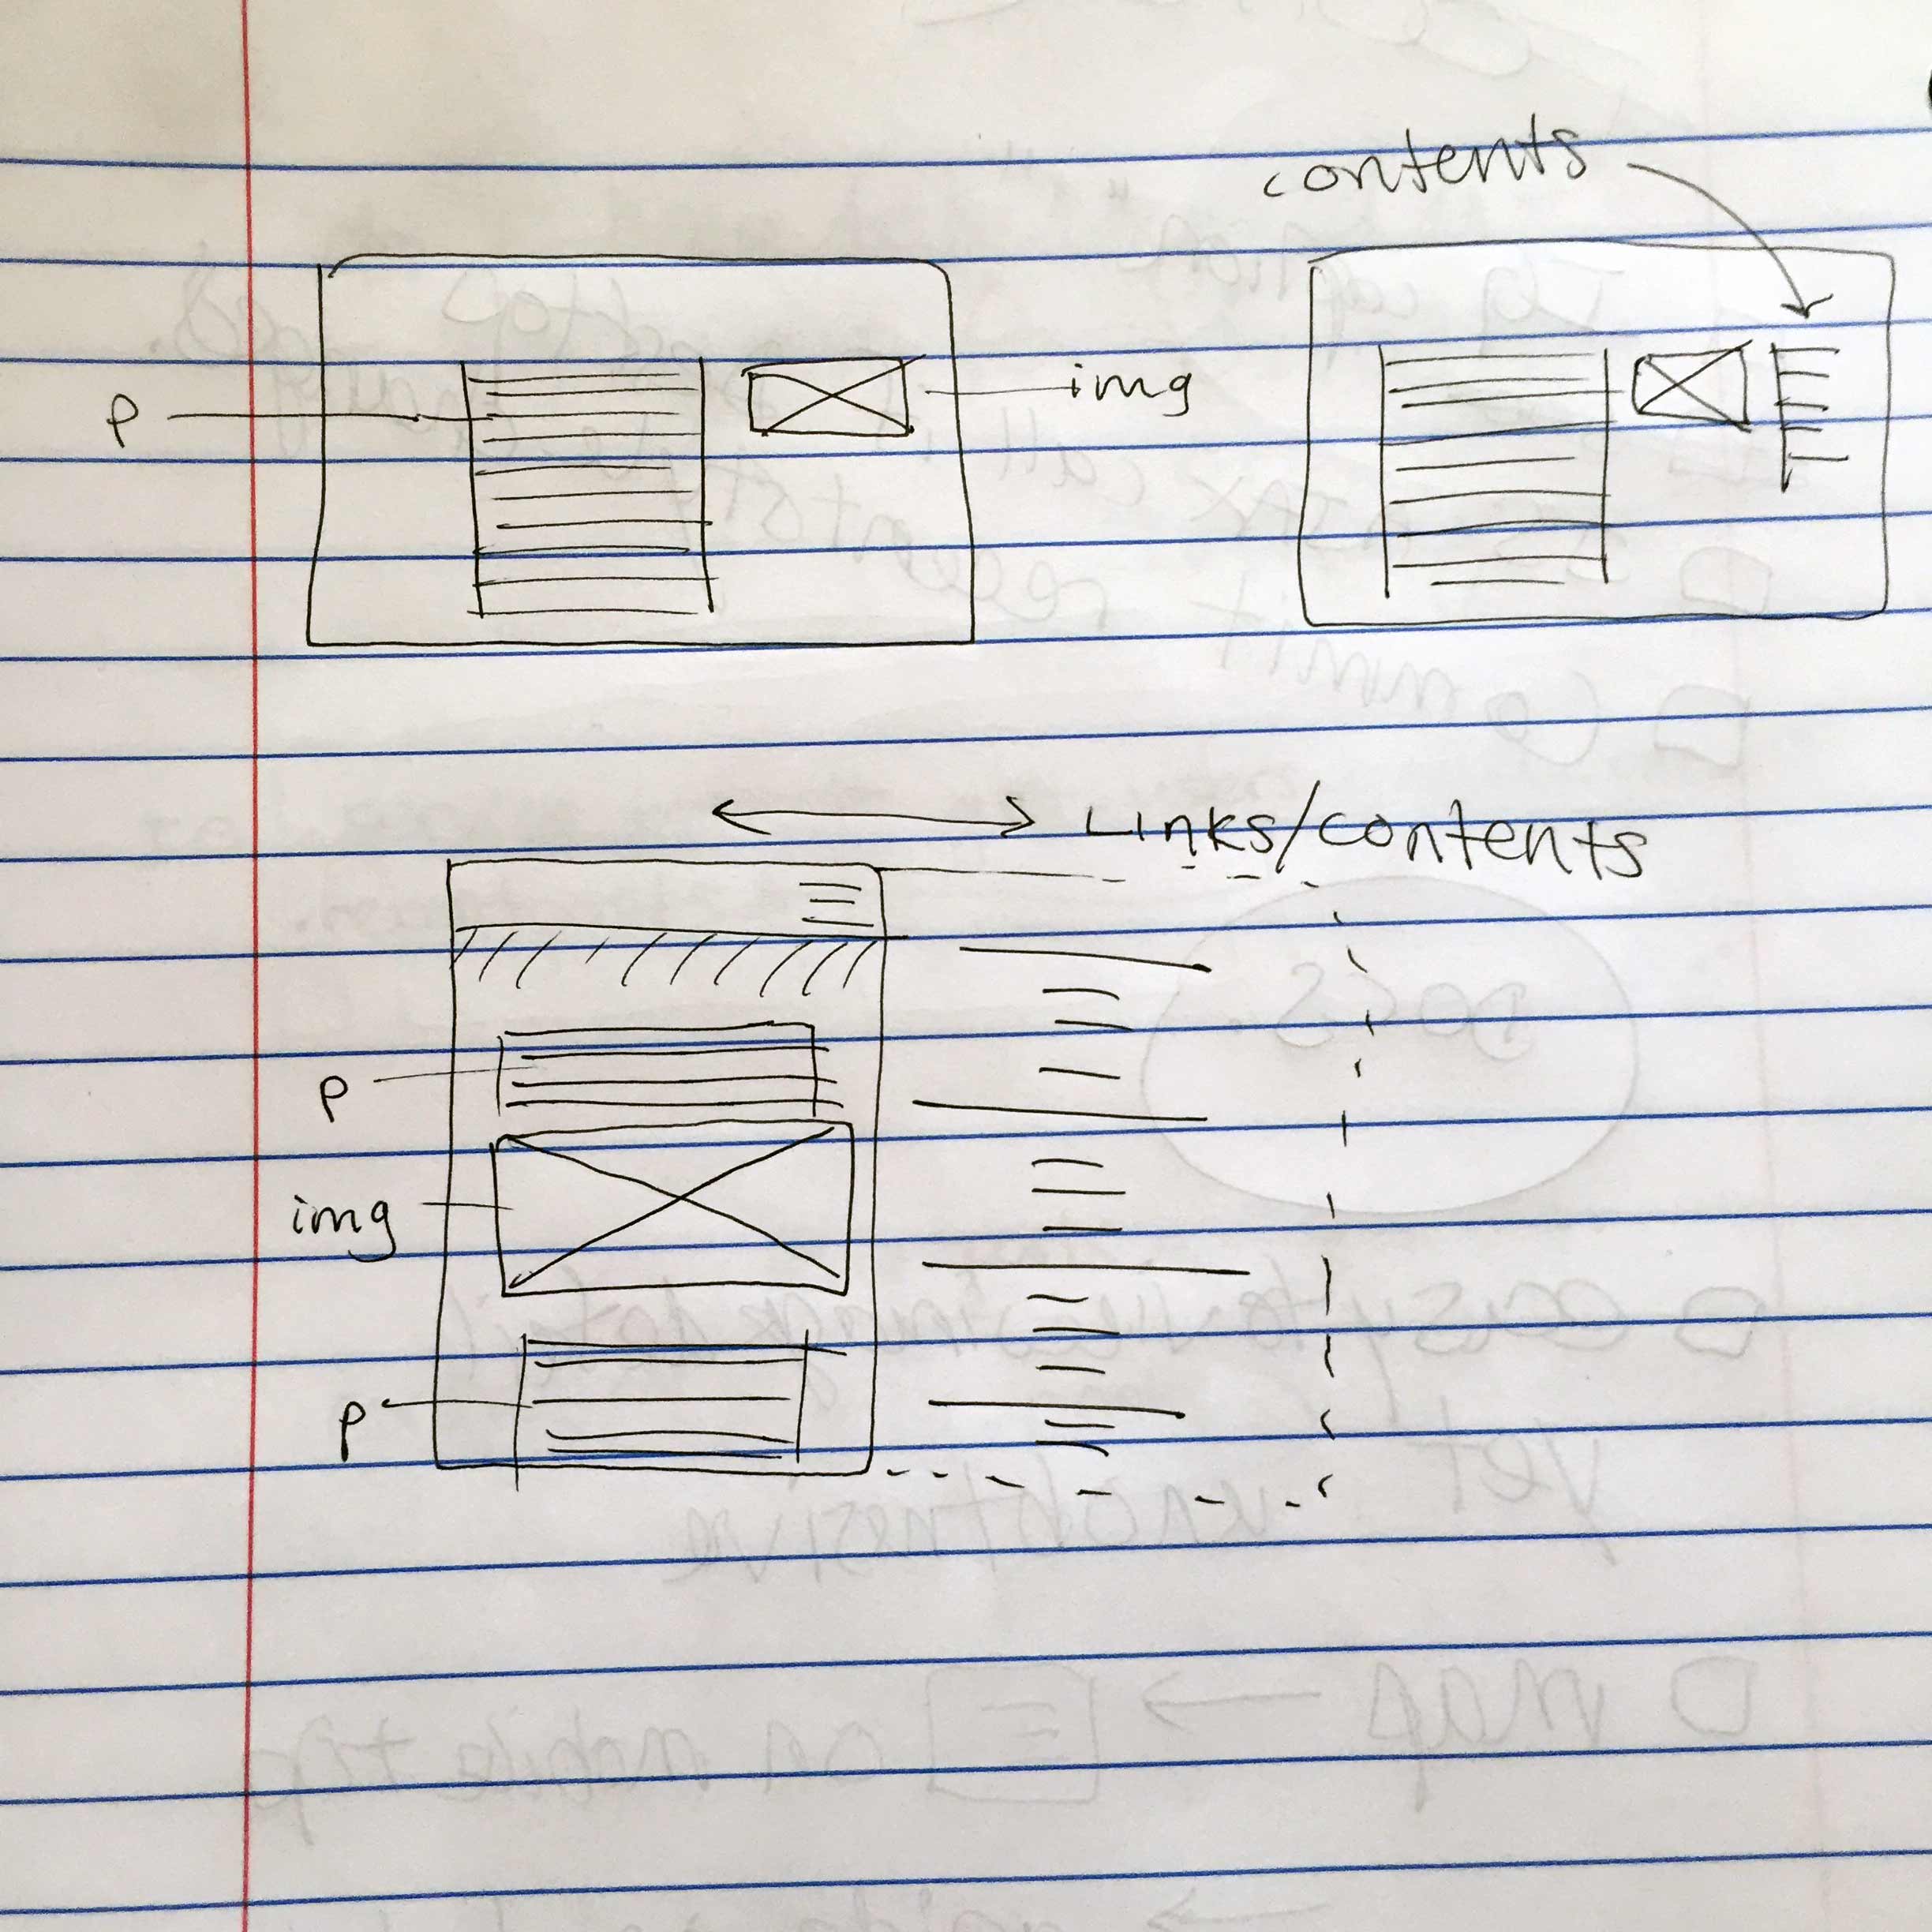 contents
p
img
Links/contents
p
img
p